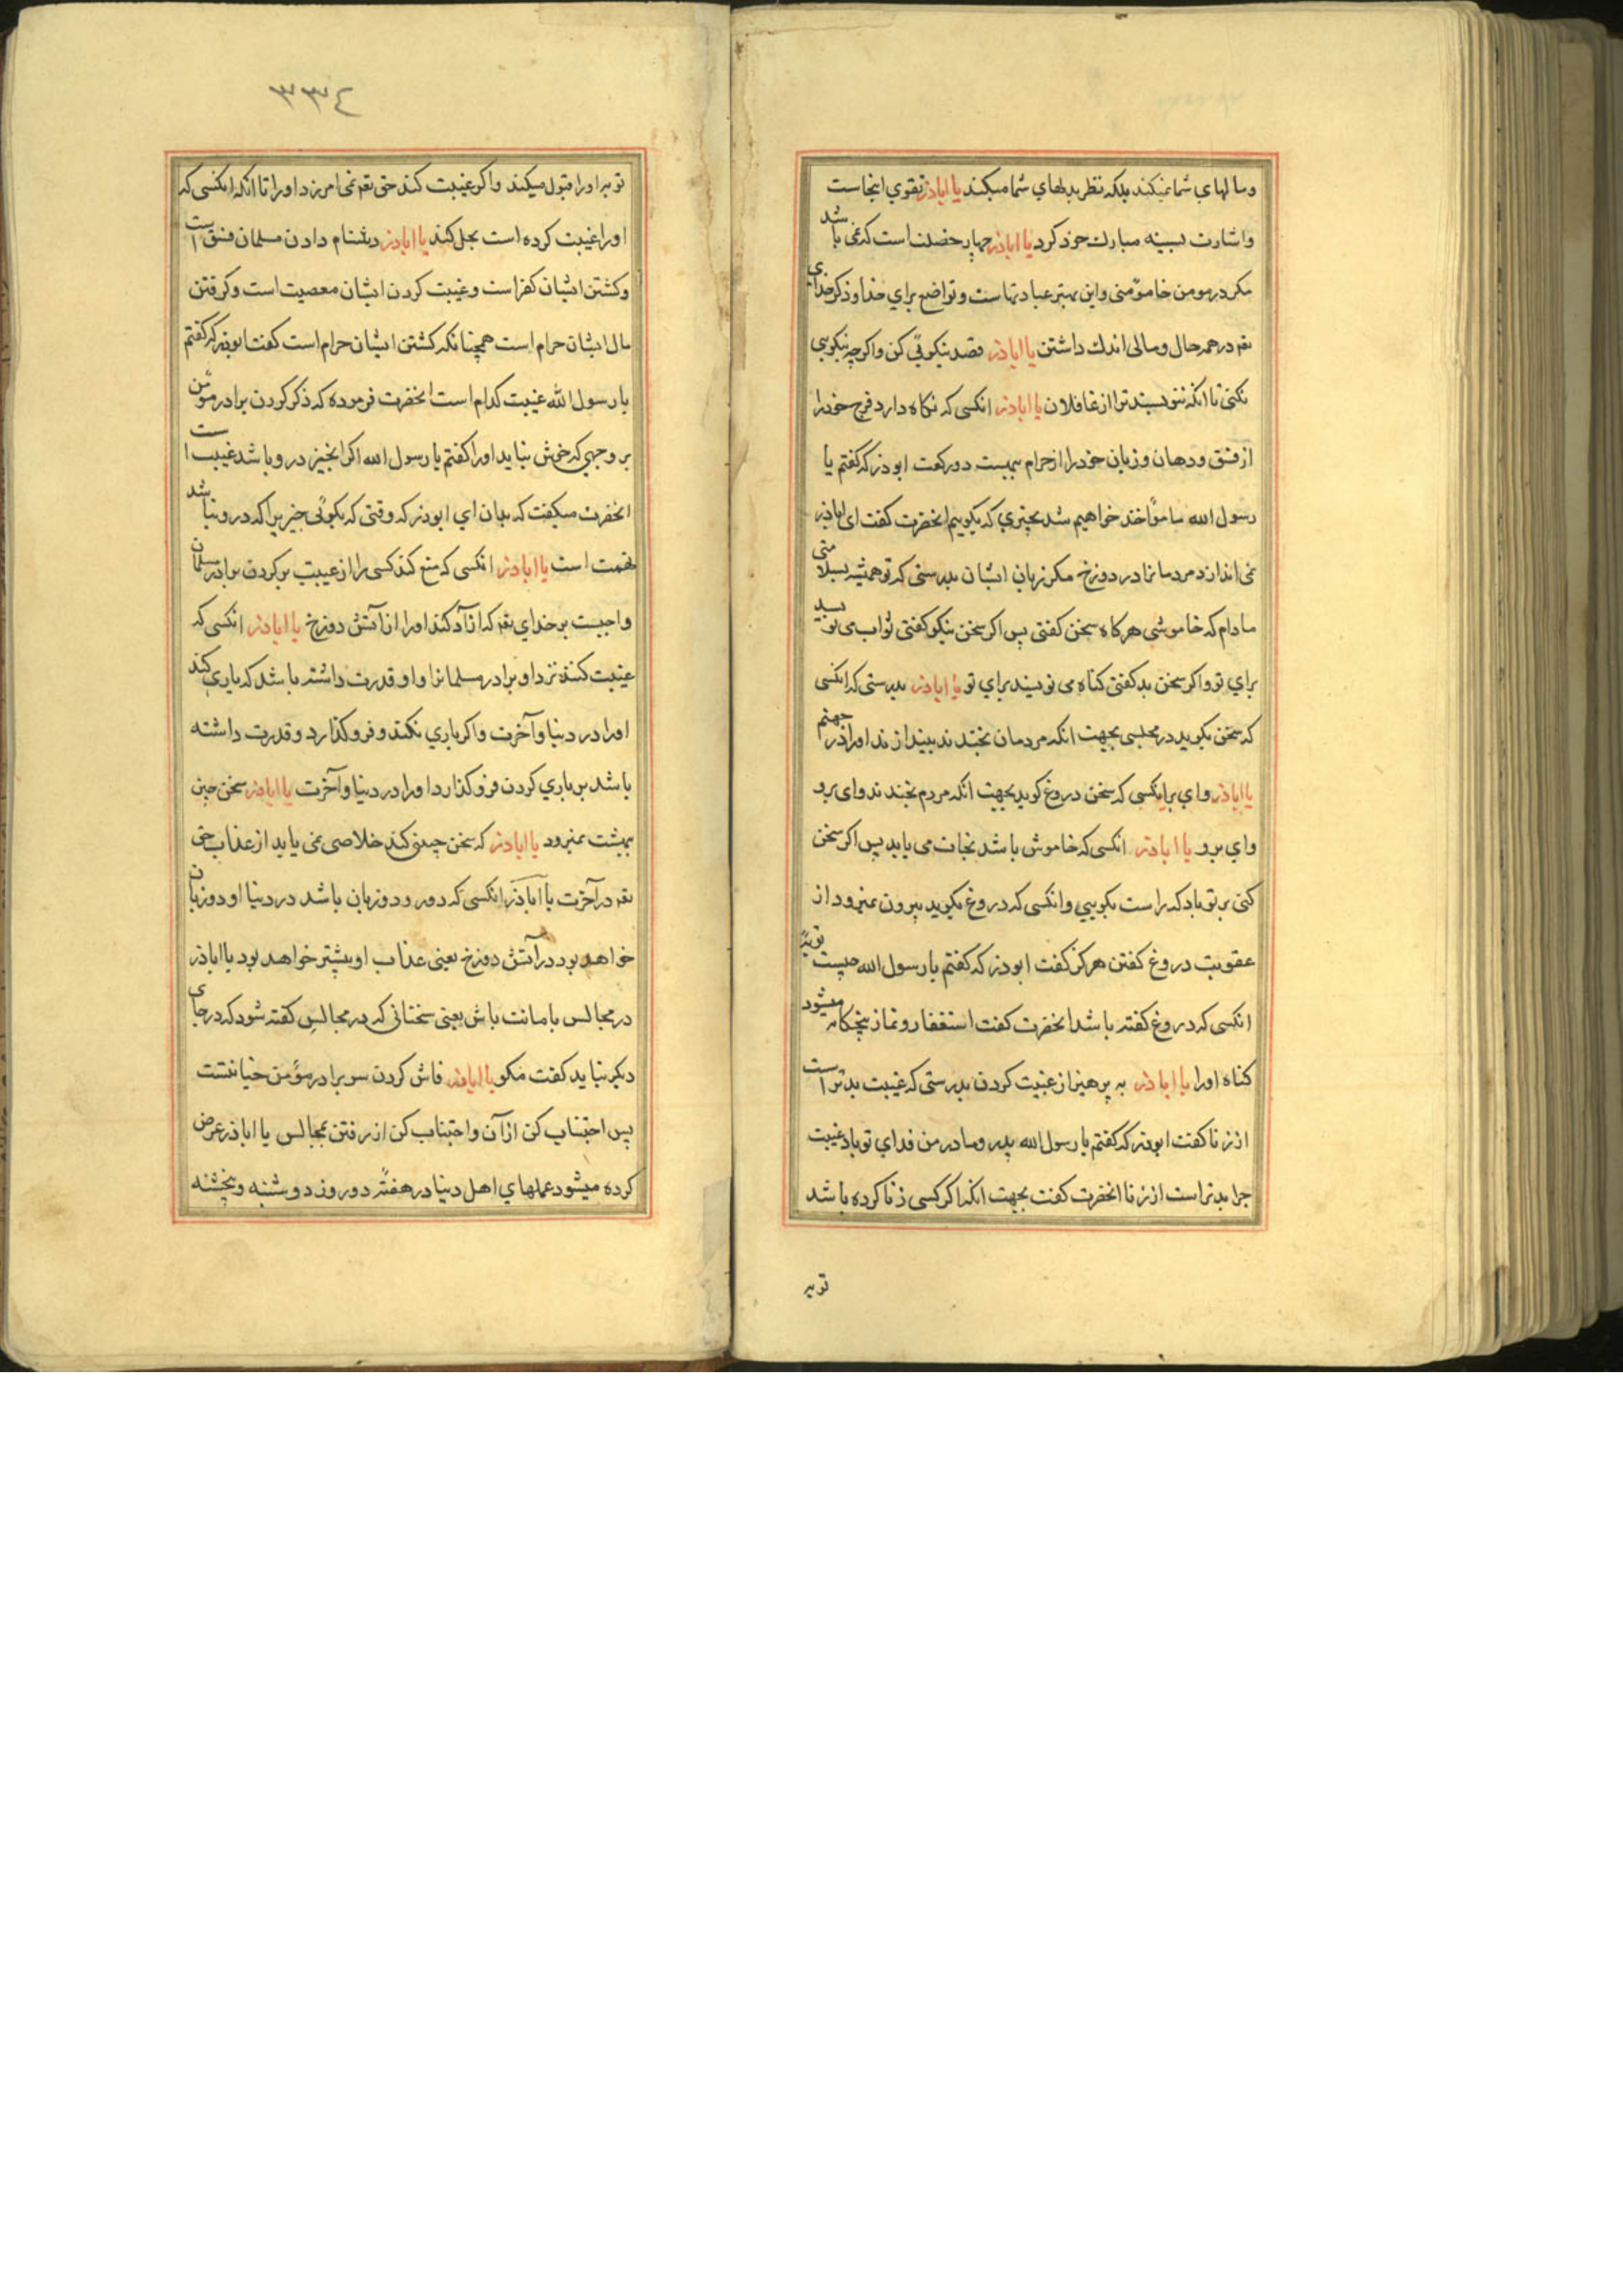 ومالهای شما نمیکند بلکه نظر بدلهای شما میکند یا اباذر تقوی اینجاست
واشارت بسینه مبارك خود کرد یا اباذر چهار خصلت است که نمی باشد
مکر در مومن خاموشی واین بهتر عبادتهاست وتواضع برای خدا وذکر خدای
تعه در همه حال ومالی اندك داشتن یا اباذر قصد نیکوئی کن واکرچه نیکویی
نکنی تا انکه ننویسند ترا از غافلان یا اباذر انکسی که نکاه دارد فرج خودرا
از فسق ودهان وزبان خودرا از حرام ببهشت دور کفت ابوذر که کفتم یا
رسول الله ما مؤاخذ خواهیم شد بچیزی که بکوییم انحضرت کفت ای اباذر
نمی اندازد مردمانرا در دوزخ مکر زبان ایشان بدرستی که تو همیشه بسلامتی
مادام که خاموشی هرکاه سخن کفتی پس اکر سخن نیکو کفتی ثواب می نویسد
برای تو واکر سخن بد کفتی کناه می نویسند برای تو یا اباذر بدرستی که انکسی
که سخن بکوید در مجلسی بجهت انکه مردمان بخندند بیندازند اورا در جهنم
یا اباذر وای بر انکسی که سخن دروغ کوید بجهت انکه مردم بخندند وای برو
وای برو یا اباذر انکسی که خاموش باشد نجات می یابد پس اکر سخن
کنی بر تو باد که راست بکویی وانکسی که دروغ بکوید بیرون نمیرود از
عقوبت دروغ کفتن هرکز کفت ابوذر که کفتم یا رسول الله چیست توبهٔ
انکسی که دروغ کفته باشد انحضرت کفت استغفار ونماز پنجکانه میشود
کناه اورا یا اباذر به پرهیز از غیبت کردن بدرستی که غیبت بدتر است
از زنا کفت ابوذر که کفتم یا رسول الله پدر ومادر من فدای تو باد غیبت
چرا بدتر است از زنا انحضرت کفت بجهت انکه اکر کسی زنا کرده باشد
توبه
٣٣٤
توبه اورا قبول میکند واکر غیبت کند حق تعه نمی امرزد اورا تا انکه انکسی که
اورا غیبت کرده است بحل کند یا اباذر دشنام دادن مسلمان فسق است
وکشتن ایشان کفر است وغیبت کردن ایشان معصیت است وکرفتن
مال ایشان حرام است همچنانکه کشتن ایشان حرام است کفت ابوذر که کفتم
یا رسول الله غیبت کدام است انحضرت فرموده که ذکر کردن برادر مؤمن
بر وجهی که خوش نیاید اورا کفتم یا رسول الله اکر انچیز در و باشد غیبت است
انحضرت میکفت که بدان ای ابوذر که وقتی که بکوئی چیزیرا که در و نباشد
تهمت است یا اباذر انکسی که منع کند کسی را از غیبت بر کردن برادر مسلمان
واجبست بر خدای تعه که ازاد کند اورا از آتش دوزخ یا اباذر انکسی که
غیبت کنند نزد او برادر مسلمانرا واو قدرت داشته باشد که یاری کند
اورا در دنیا وآخرت واکر یاری نکند و فرو کذارد وقدرت داشته
باشد بر یاری کردن فرو کذارد اورا در دنیا وآخرت یا اباذر سخن چین
ببهشت نمیرود یا اباذر که سخن چینی کند خلاصی نمی یابد از عذاب حق
تعه در آخرت یا اباذر انکسی که دورو ودوزبان باشد در دنیا او دوزبان
خواهد بود در آتش دوزخ یعنی عذاب او بیشتر خواهد بود یا اباذر
در مجالس بامانت باش یعنی سخنانی که در مجالس کفته شود که در جای
دیکر نباید کفت مکو یا اباذر فاش کردن سر برادر مؤمن خیانتست
پس اجتناب کن ازآن واجتناب کن از رفتن بمجالس یا اباذر عرض
کرده میشود عملهای اهل دنیا در هفتهٔ دو روز دوشنبه وپنجشنبه